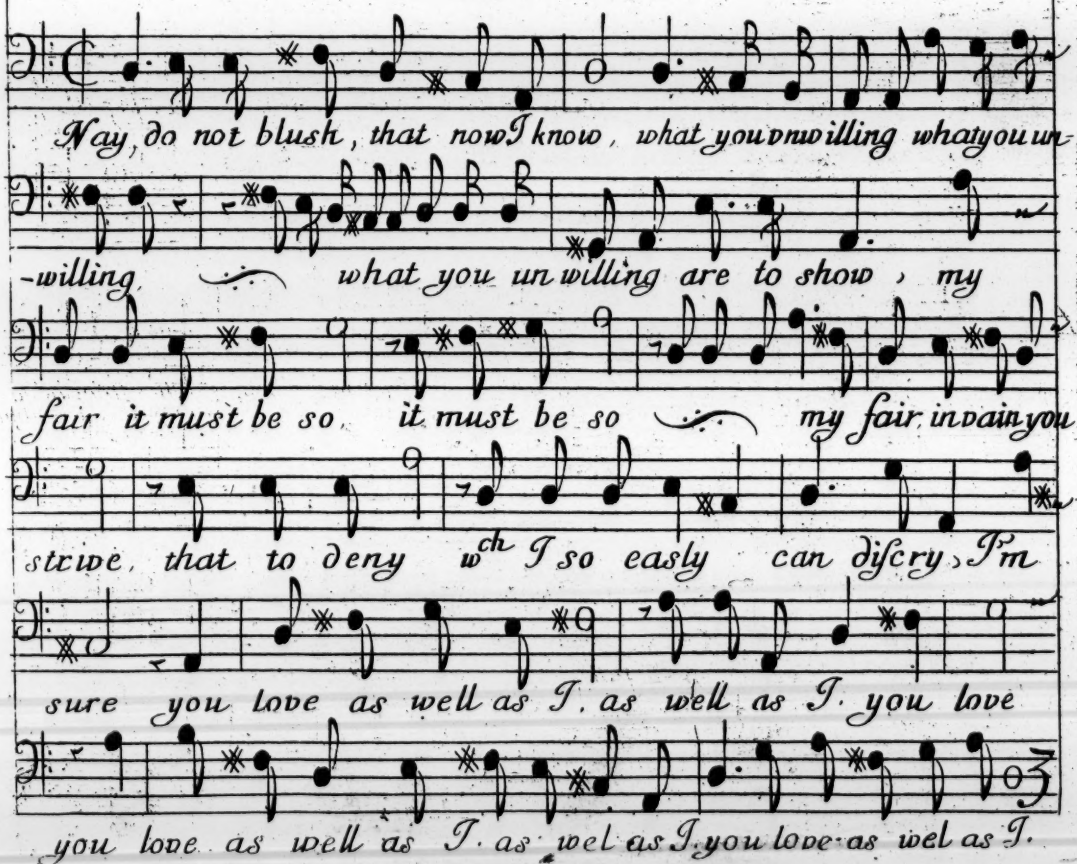 Nay, do not blush, that now I know, what you vnwilling what you un-
-willing, what you un willing are to show, my
fair it must be so, it must be so my fair, in vain you
strive, that to deny wch I so easly can discry, I'm
sure you love as well as I. as well as I. you love
you love as well as I. as wel as I. you love as wel as I.